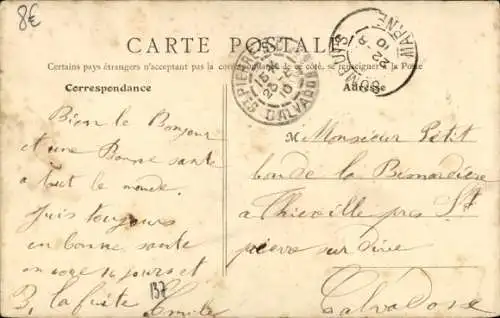 8€
CARTE POSTALE
Certains pays étrangers n'acceptent pas la correspondance de ce côté, se renseigner à la Poste
Correspondance
Adresse
ST PIERRE-S-
CALVADOS
15
23-5
10
SOMPUIS
MARNE
22
10
Bien le Bonjour
et une Bonne santé
a tout le monde.
Suis toujours
en bonne sante
encore 14 jours et
B. la fuite Emile
137
M Monsieur Petit
de la Bismardière
a Thieville pres St
piere sur dive
Calvados